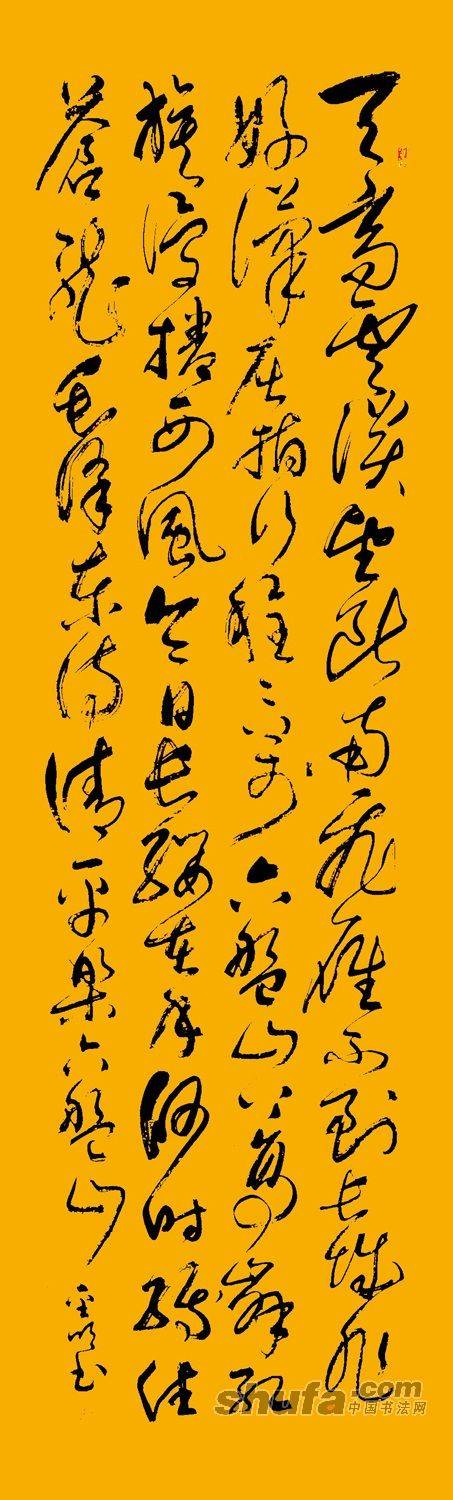 天高雲淡望断南飛雁不到长城非
好漢屈指行程二万六盤山上高峰红
旗漫捲西風今日长缨在手何时缚住
蒼龍毛泽东词清平樂六盤山
shufa.com
中国书法网